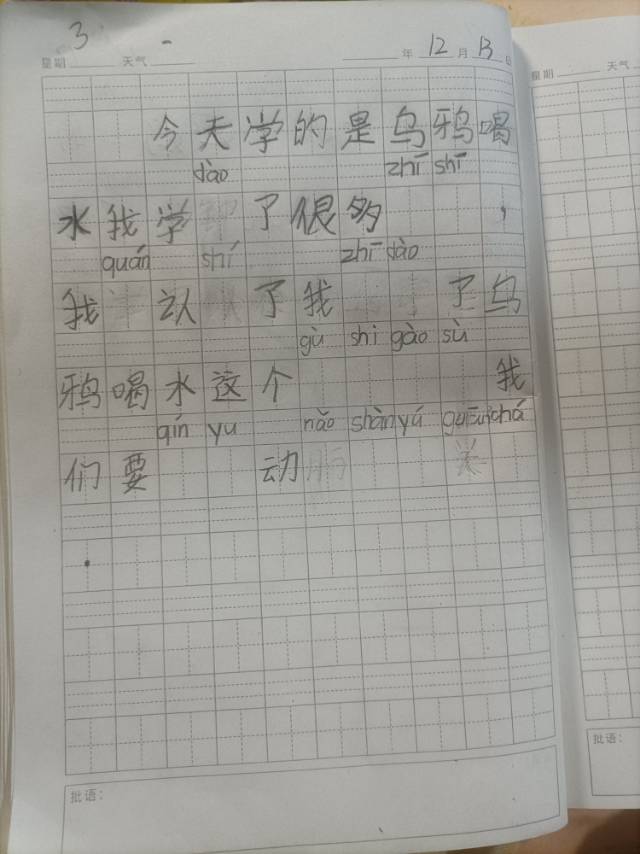 3 -
星期 天气 年 12 月 13 日
星期 天气
今天学的是乌鸦喝
dào zhī shī
水我学 了很多 ，
quán shí zhī dào
我 认 了我 了乌
gù shi gào sù
鸦喝水这个 我
qín yu nǎo shàn yú guān chá
们要 动
批语：
批语：